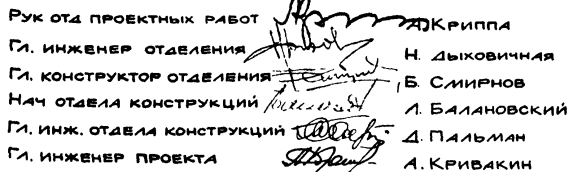 Рук отд проектных работ А. Криппа
Гл. инженер отделения Н. Дыховичная
Гл. конструктор отделения Б. Смирнов
Нач отдела конструкций Л. Балановский
Гл. инж. отдела конструкций Д. Пальман
Гл. инженер проекта А. Кривакин